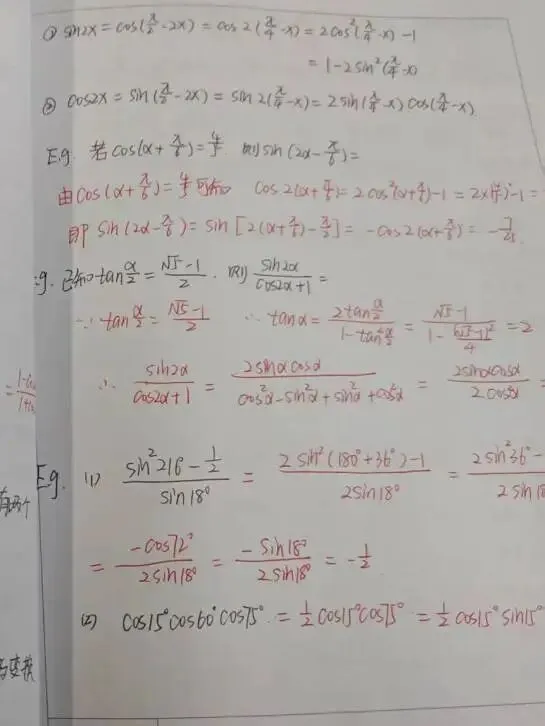 ① sin2x = cos(π/2 - 2x) = cos2(π/4 - x) = 2cos²(π/4 - x) - 1
= 1 - 2sin²(π/4 - x)
② cos2x = sin(π/2 - 2x) = sin2(π/4 - x) = 2sin(π/4 - x)cos(π/4 - x)
E.g. 若cos(α + π/6) = 4/5. 则sin(2α - π/6) =
由cos(α + π/6) = 4/5可知 cos2(α + π/6) = 2cos²(α + π/6) - 1 = 2×(4/5)² - 1 =
即 sin(2α - π/6) = sin[2(α + π/6) - π/2] = -cos2(α + π/6) = -7/25
:g. 已知tan α/2 = (√5 - 1)/2. 则 sin2α/(cos2α + 1) =
∵ tan α/2 = (√5 - 1)/2 ∴ tanα = 2tan α/2/(1 - tan² α/2) = (√5 - 1)/(1 - (√5 - 1)²/4) = 2
∴ sin2α/(cos2α + 1) = 2sinαcosα/(cos²α - sin²α + sin²α + cos²α) = 2sinαcosα/2cos²α =
E.g. (1) (sin²216° - 1/2)/sin18° = (2sin²(180° + 36°) - 1)/2sin18° = 2sin²36° - / 2sin18
= -cos72°/2sin18° = -sin18°/2sin18° = -1/2
(2) cos15°cos60°cos75° = 1/2 cos15°cos75° = 1/2 cos15°sin15°
变换